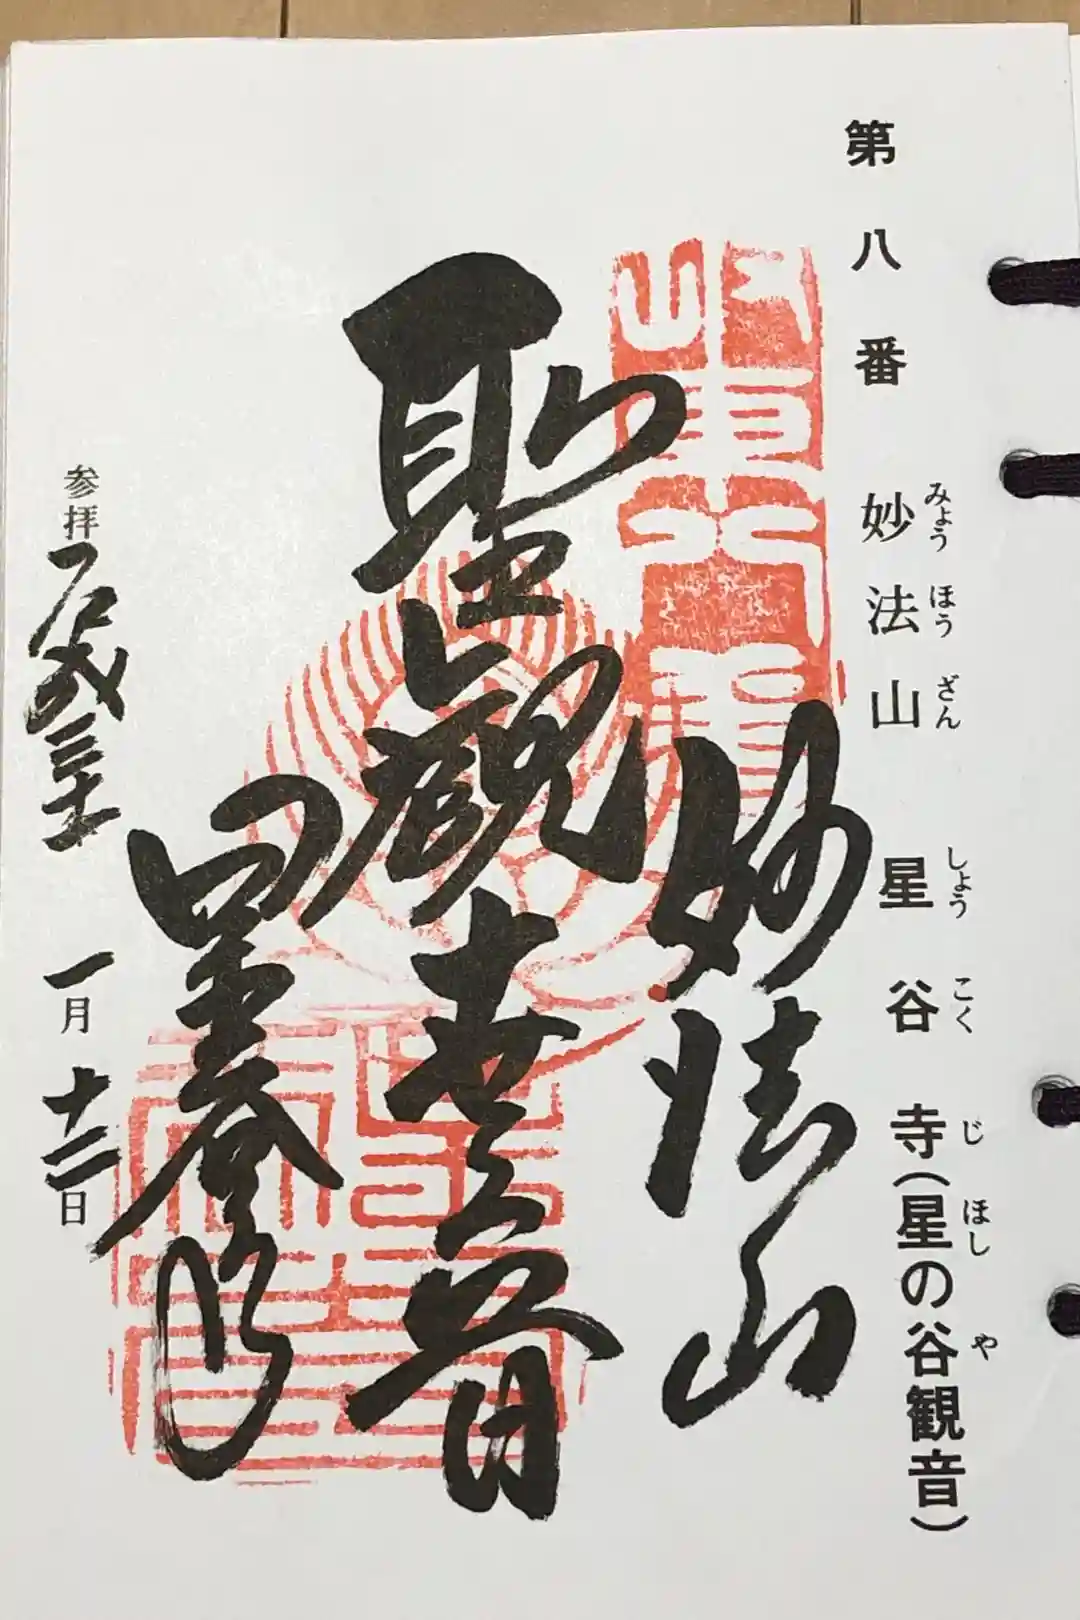 第八番 妙法山 星谷寺(星の谷観音)
みょうほうざん しょうこくじ ほしや
妙法山
聖観世音
星谷寺
参拝 平成三十年 一月十二日